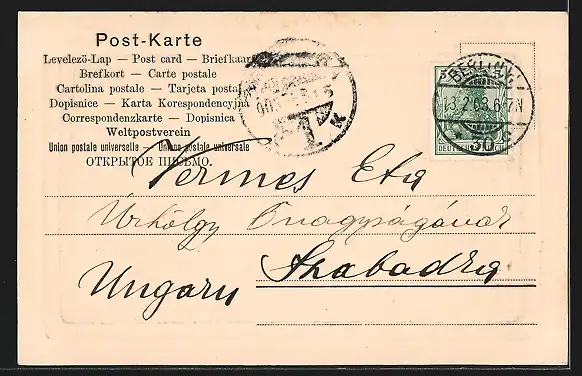 Post-Karte
Levelező-Lap — Post card — Briefkaart
Brefkort — Carte postale
Cartolina postale — Tarjeta postal
Dopisnice — Karta Korespondencyjna
Correspondenzkarte — Dopisnica
Weltpostverein
Union postale universelle — Union postale universale
ОТКРЫТОЕ ПИСЬМО.
BERLIN W
DEUTSCHES REICH
30
T
Vermes Eta
Úrhölgy Önagyságának
Szabadka
Ungarn